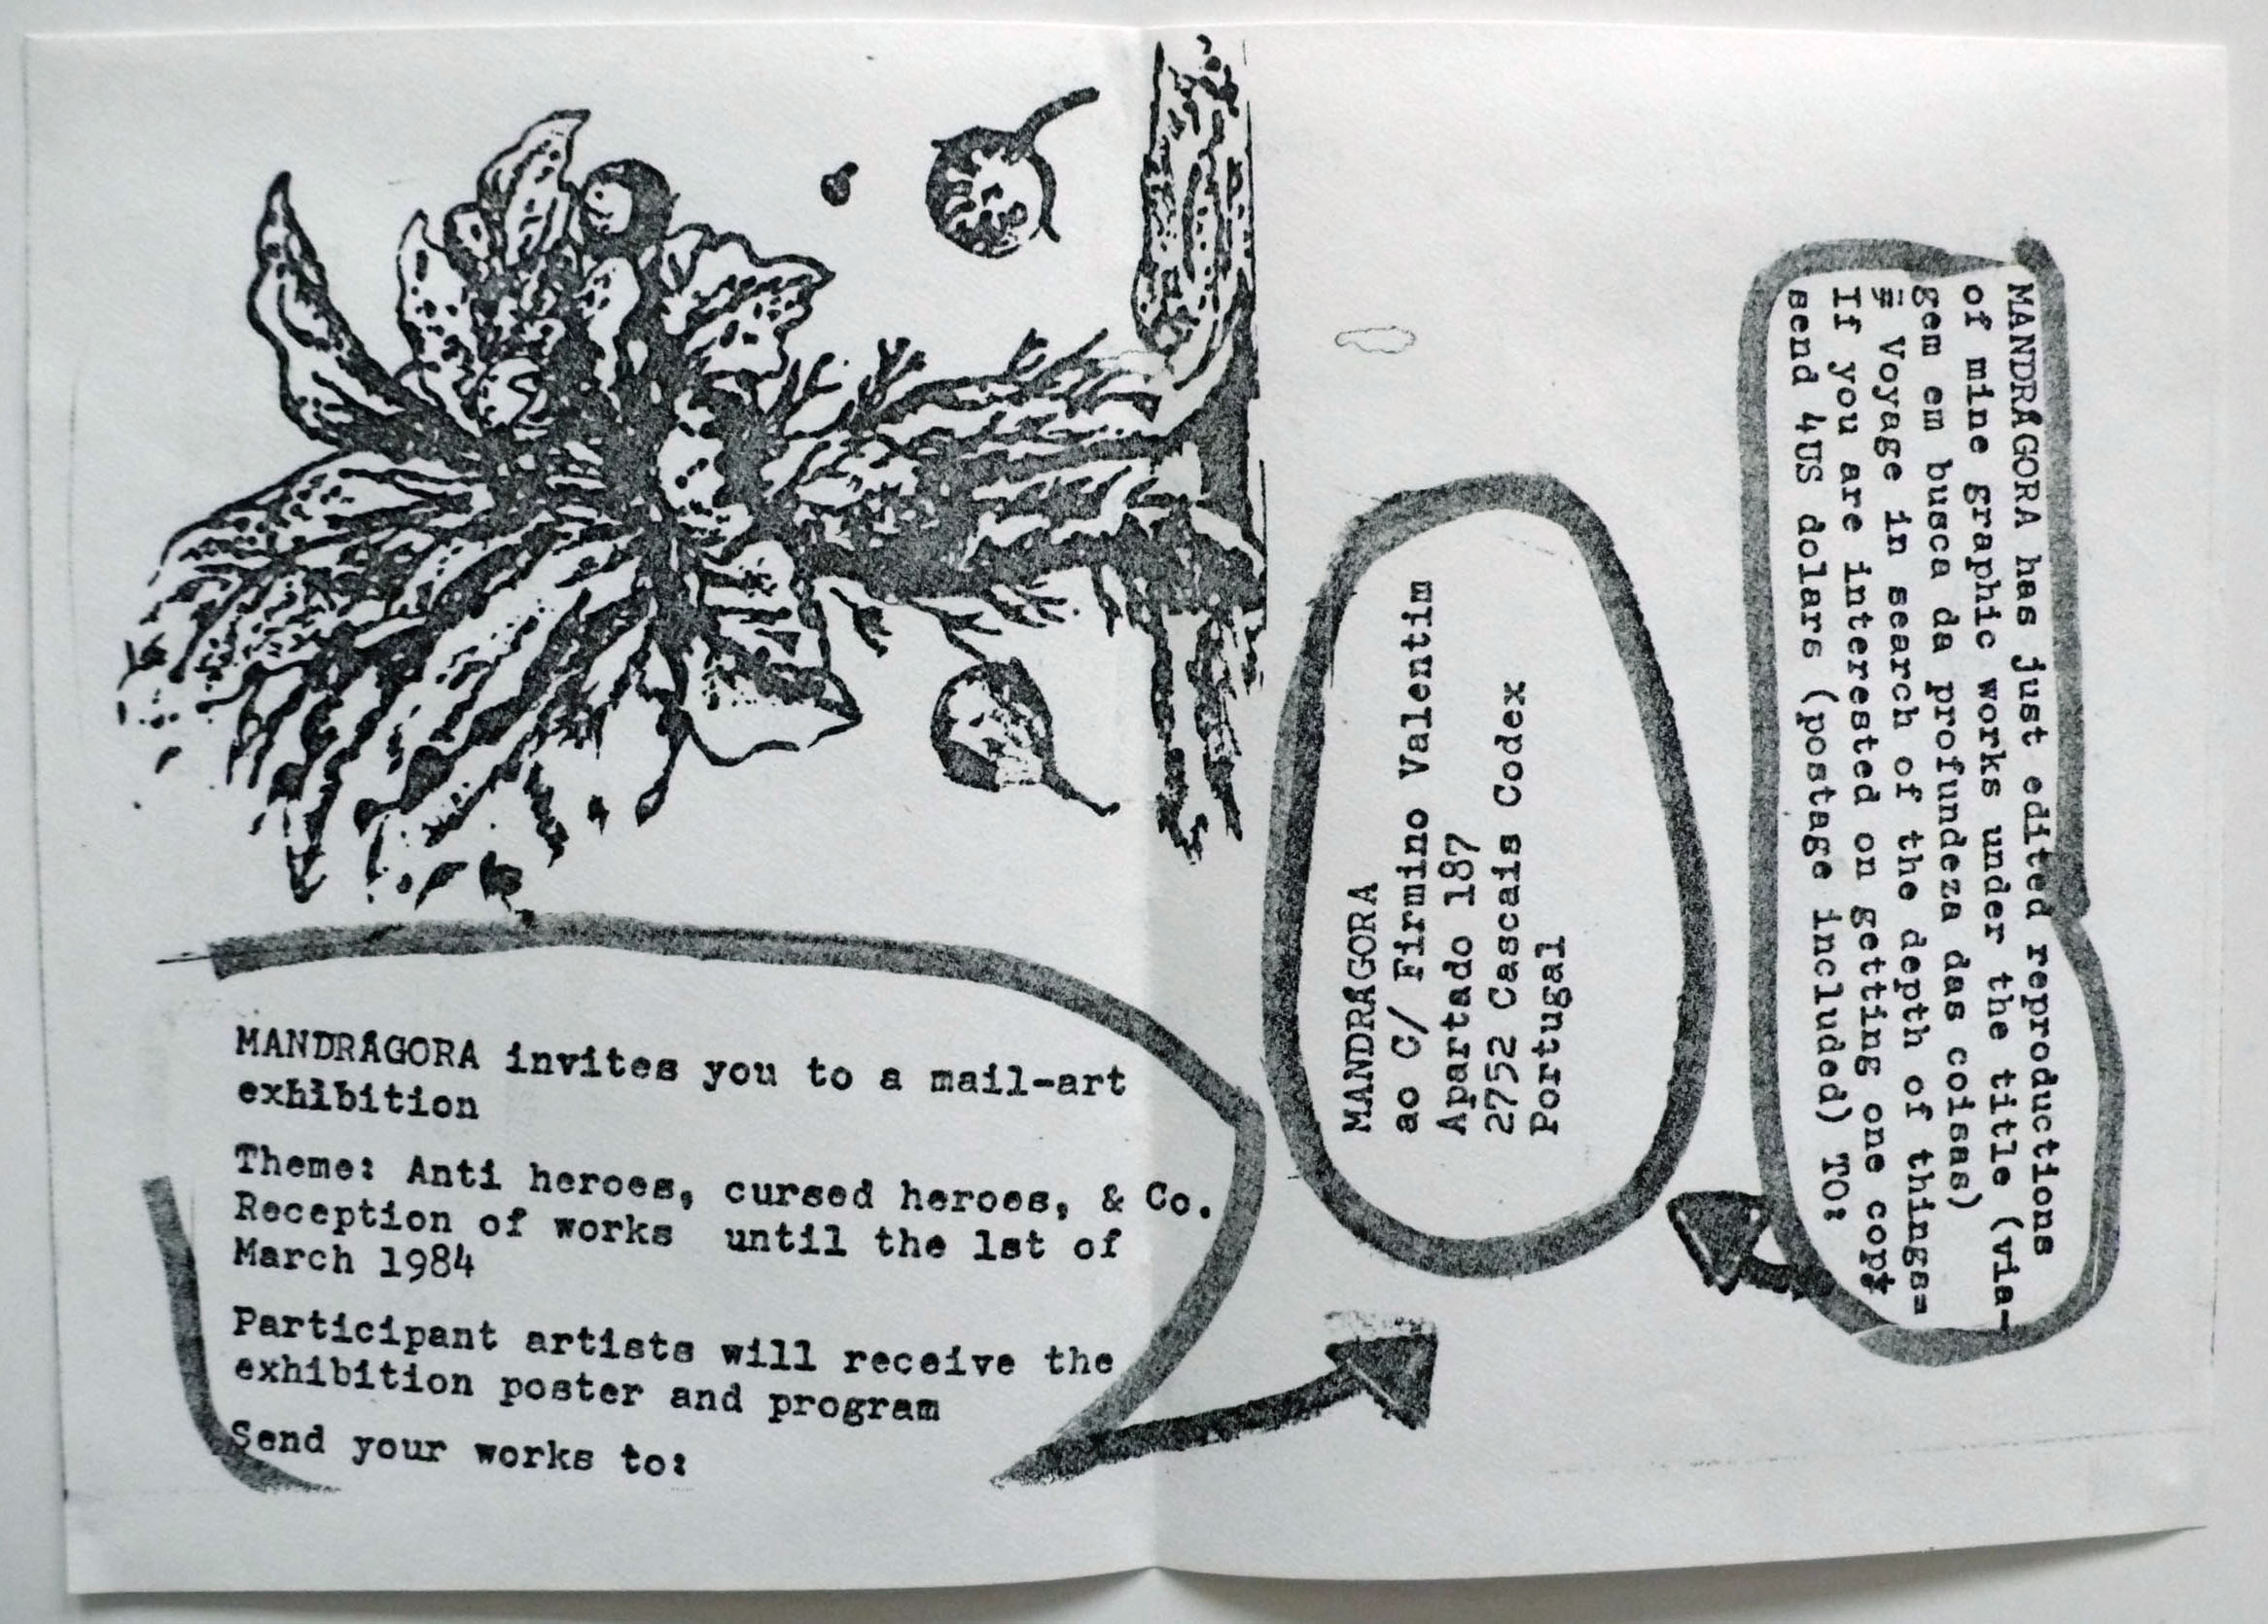 MANDRÁGORA invites you to a mail-art
exhibition
Theme: Anti heroes, cursed heroes, & Co.
Reception of works until the 1st of
March 1984
Participant artists will receive the
exhibition poster and program
Send your works to:
MANDRÁGORA
ao C/ Firmino Valentim
Apartado 187
2752 Cascais Codex
Portugal
MANDRÁGORA has just edited reproductions
of mine graphic works under the title (via-
gem em busca da profundeza das coisas)
= Voyage in search of the depth of things=
If you are interested on getting one copy
send 4US dolars (postage included) TO: